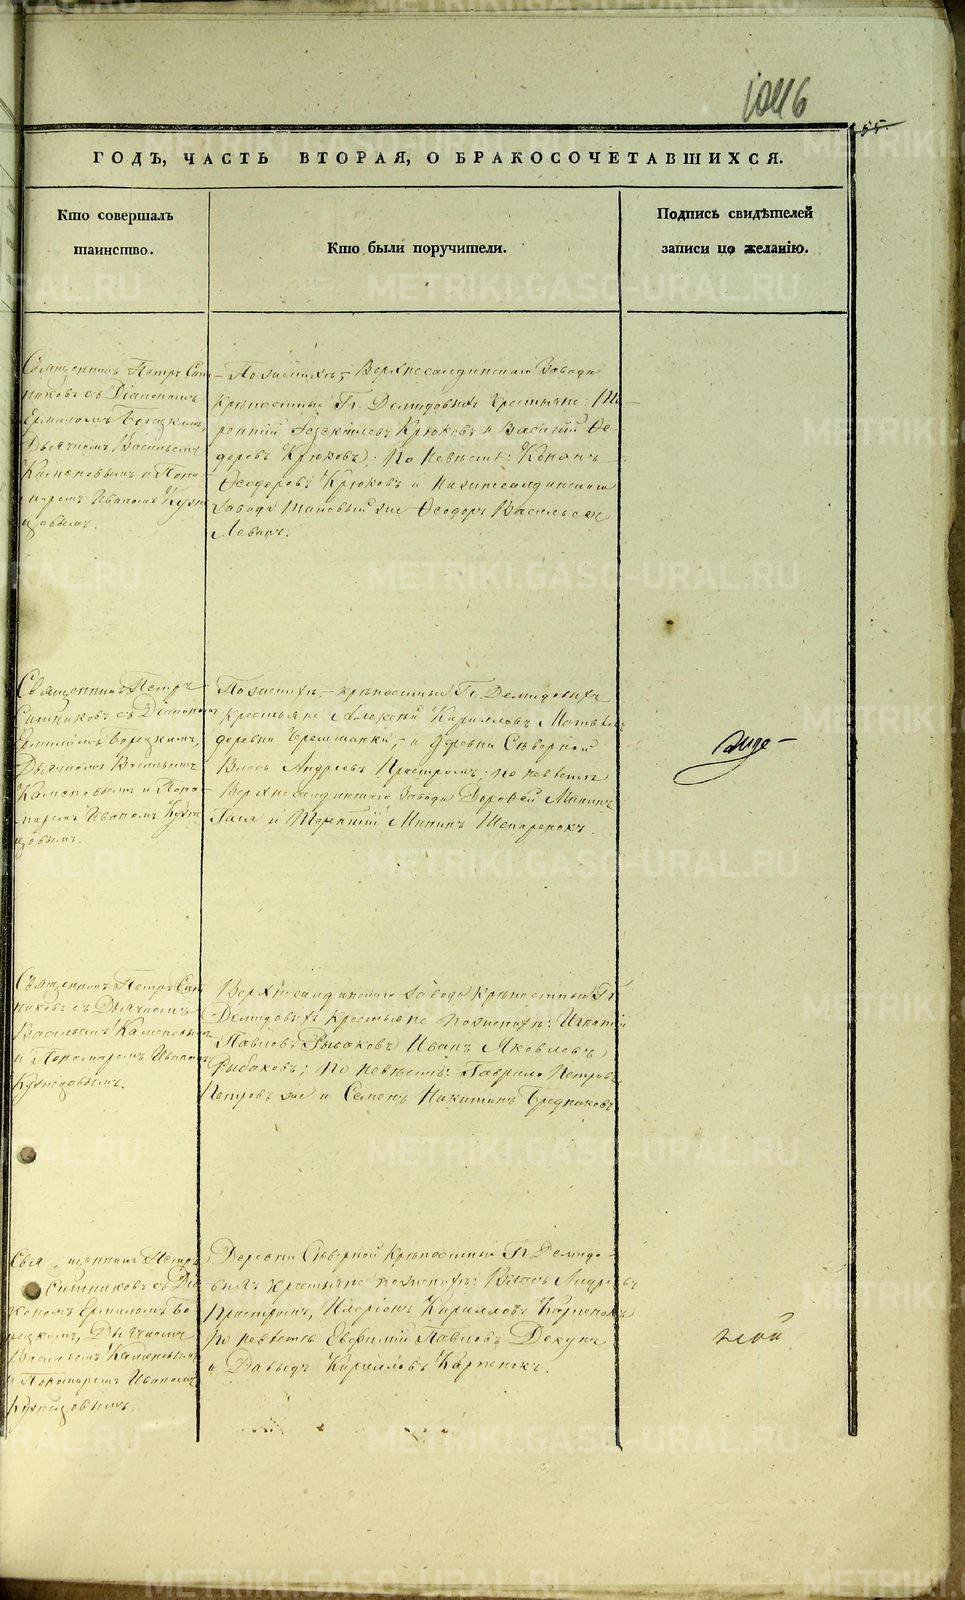 1046
55.
ГОДЪ, ЧАСТЬ ВТОРАЯ, О БРАКОСОЧЕТАВШИХСЯ.
Кто совершалъ
таинство.
Кто были поручители.
Подпись свидѣтелей
записи по желанію.
Священникъ Петръ Сит-
никовъ съ Діакономъ
Ермиломъ
Дьячкомъ Васильемъ
Каменовымъ и Поно-
маремъ Иваномъ Кузне-
цовымъ.
По женихѣ, – Верхнесалдинскаго Завода
крѣпостные Гг. Демидовыхъ крестьяне: Те-
рентій Крюковъ и Василій Ѳе-
доровъ Крюковъ; По невѣстѣ: Кононъ
Ѳеодоровъ Крюковъ и Нижнесалдинскаго
Завода таковый же Ѳеодоръ Васильевъ
Левинъ.
Священникъ Петръ
Ситниковъ съ Діакономъ
Ермиломъ
Дьячкомъ Васильемъ
Каменовымъ и Поно-
маремъ Иваномъ Кузне-
цовымъ.
По женихѣ, – крѣпостные Гг. Демидовыхъ
крестьяне Алексѣй Кирилловъ
деревни – и деревни Сѣверной
Власъ Андреевъ по невѣстѣ
Верхнесалдинскаго Завода Дорофей Мининъ
и Терентій Мининъ
Священникъ Петръ Сит-
никовъ съ Дьячкомъ
Васильемъ Каменовымъ
и Пономаремъ Иваномъ
Кузнецовымъ.
Верхнесалдинскаго Завода крѣпостные Гг.
Демидовыхъ крестьяне по женихѣ: Игнатій
Павловъ Рыбаковъ Иванъ Яковлевъ
Рыбаковъ; по невѣстѣ: Гаврило Петровъ
Петровъ же и Семенъ Никитинъ Бредниковъ
Священникъ Петръ
Ситниковъ съ Діа-
кономъ Ермиломъ
Дьячкомъ
Васильемъ Каменовымъ
и Пономаремъ Иваномъ
Кузнецовымъ.
Деревни Сѣверной крѣпостные Гг. Демидо-
выхъ крестьяне по женихѣ: Власъ Андреевъ
Иларіонъ Кирилловъ Карпенокъ
по невѣстѣ Евфимій Павловъ
и Давыдъ Кирилловъ Карпенокъ.
METRIKI.GASO-URAL.RU